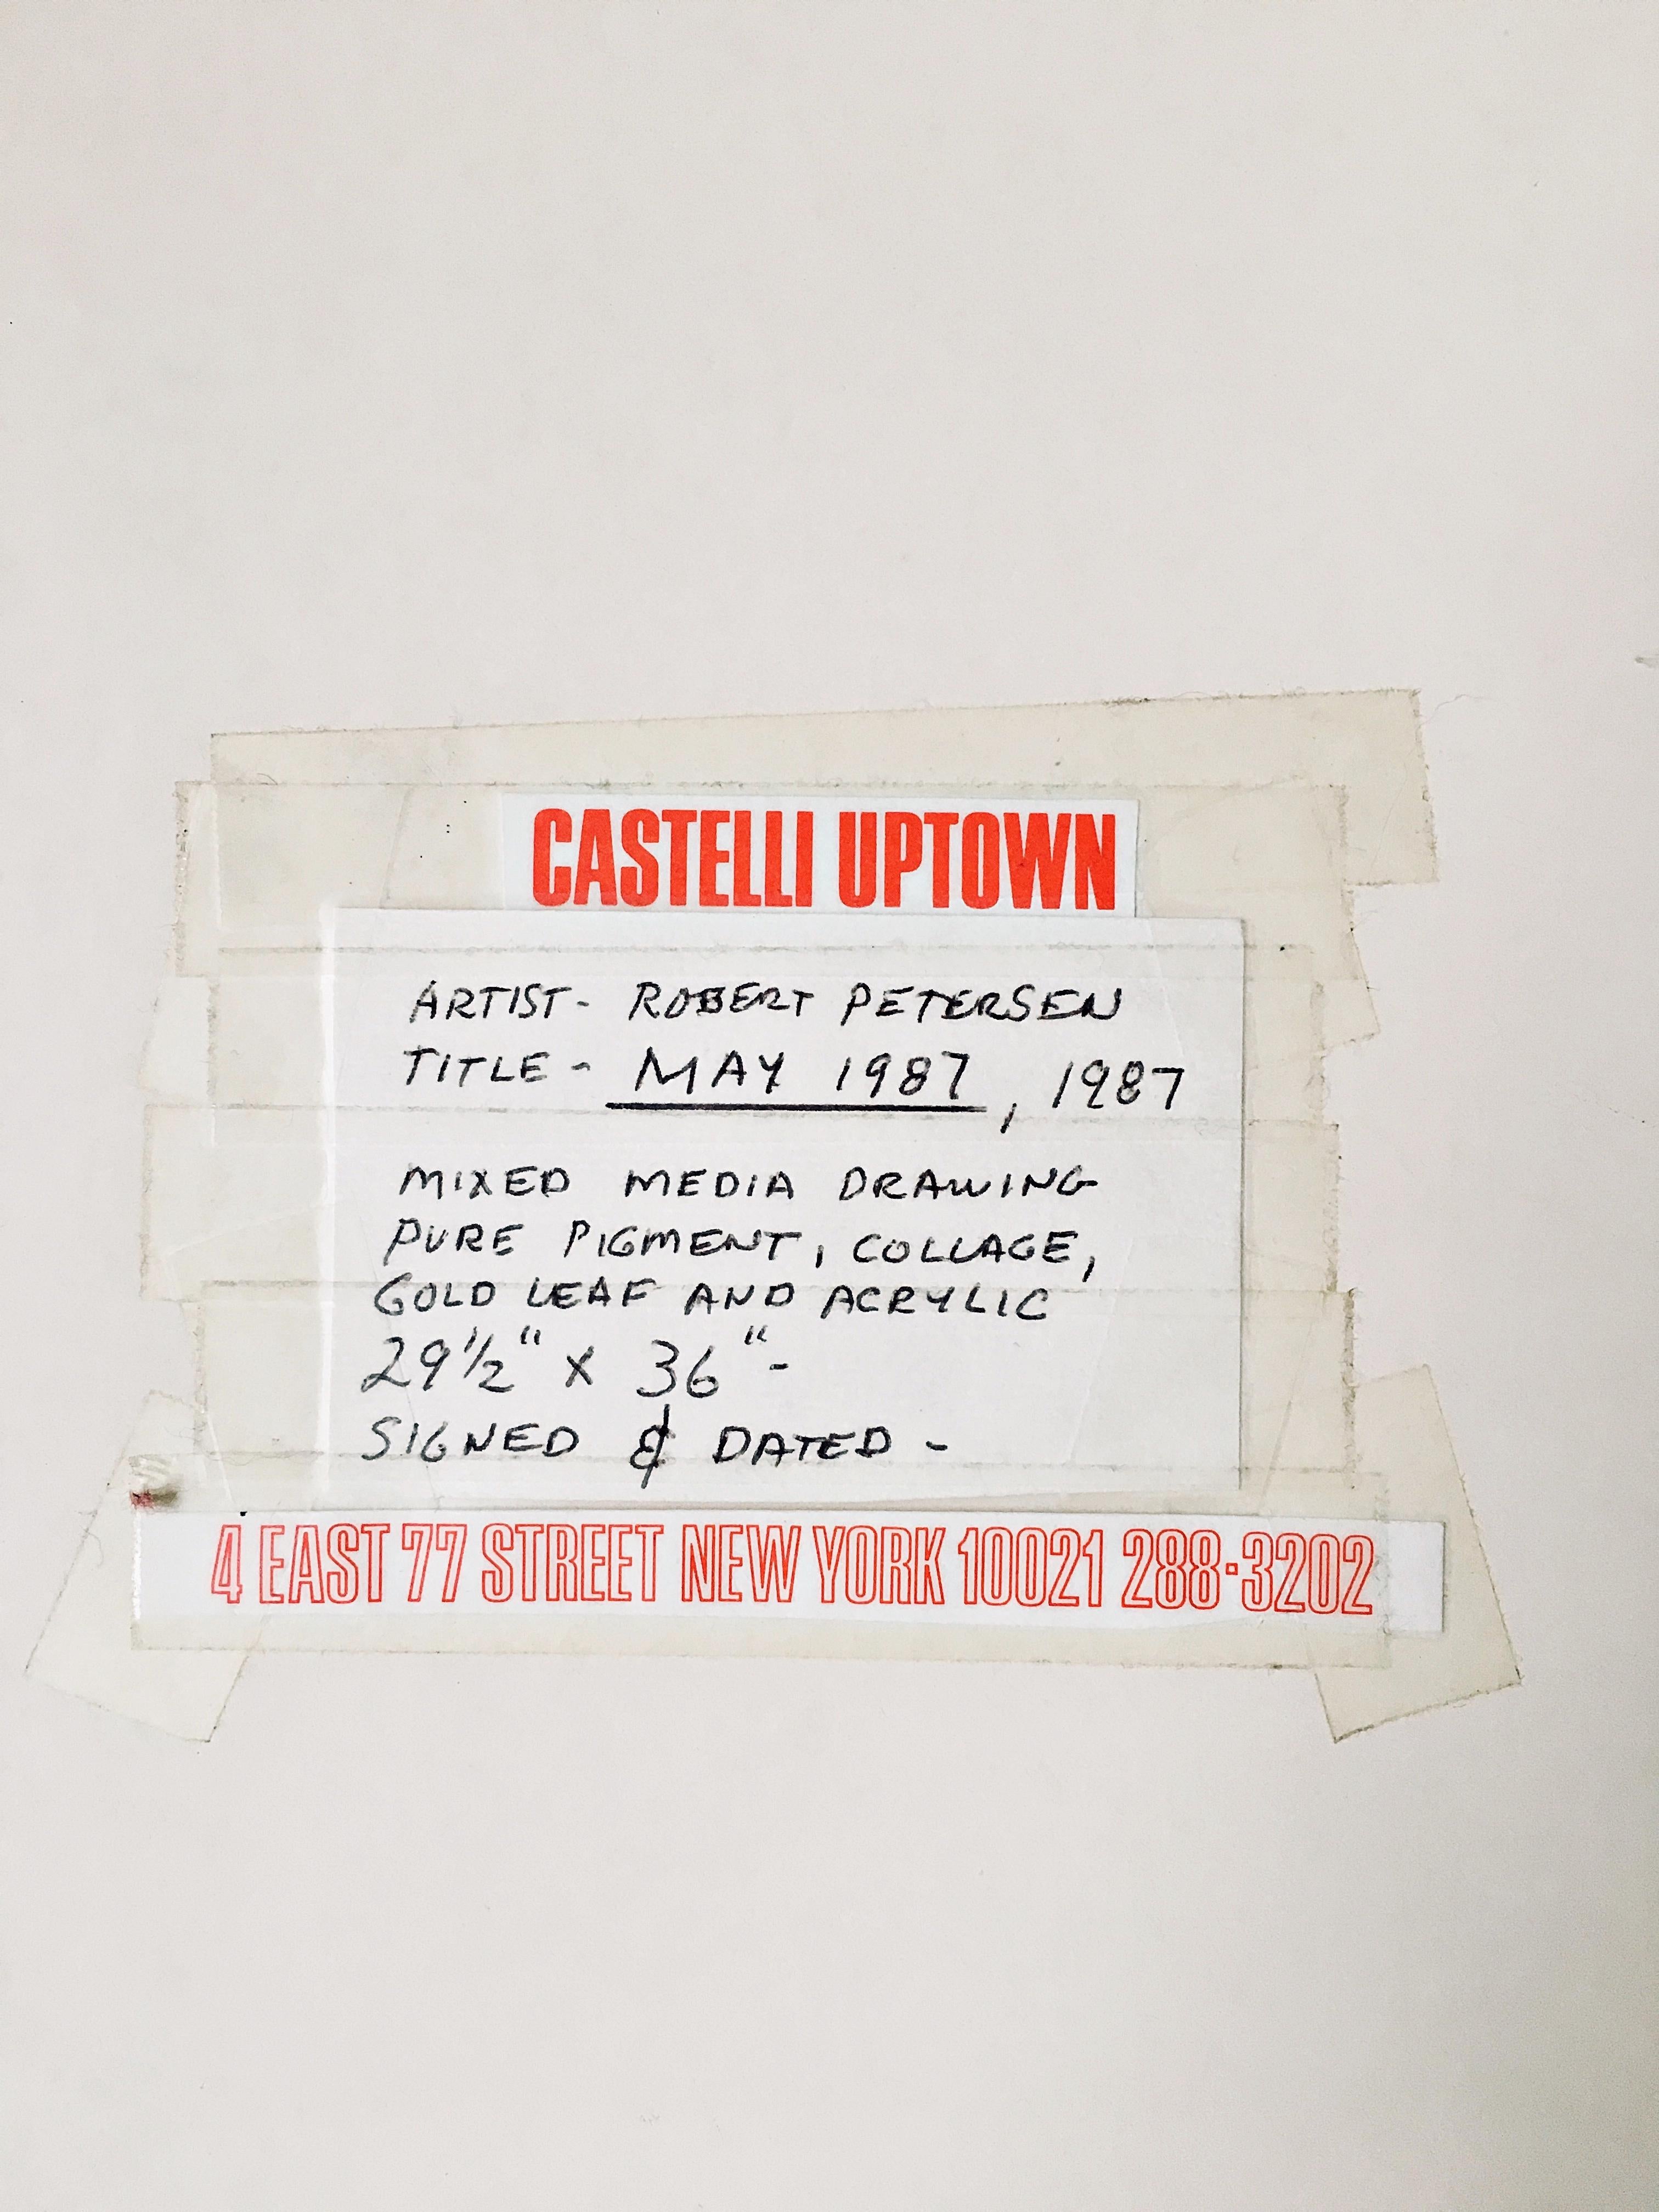 CASTELLI UPTOWN
ARTIST- ROBERT PETERSEN
TITLE - MAY 1987, 1987
MIXED MEDIA DRAWING
PURE PIGMENT, COLLAGE,
GOLD LEAF AND ACRYLIC
29½" x 36"-
SIGNED & DATED -
4 EAST 77 STREET NEW YORK 10021 288·3202